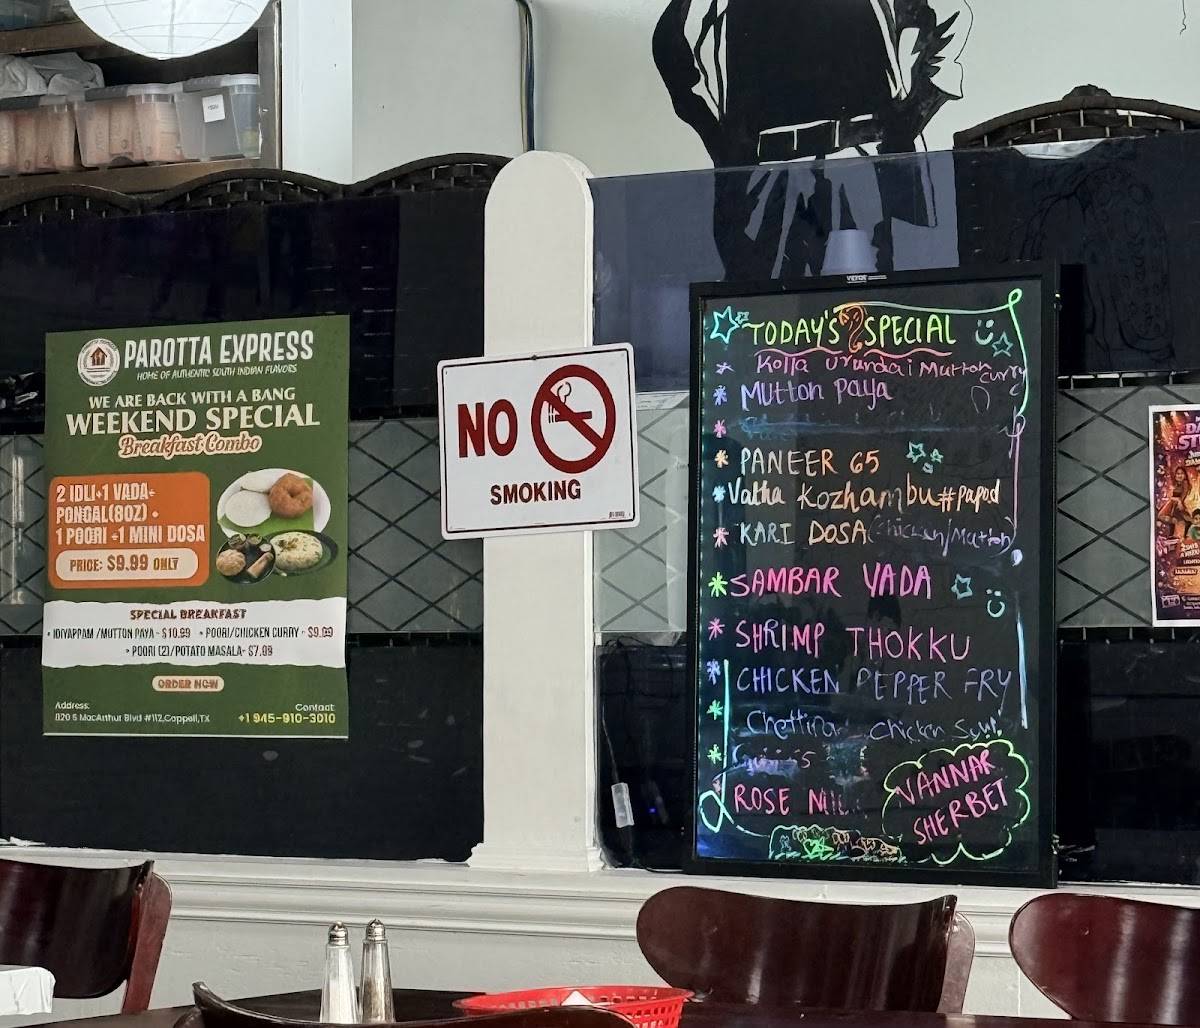 PAROTTA EXPRESS
HOME OF AUTHENTIC SOUTH INDIAN FLAVORS
WE ARE BACK WITH A BANG
WEEKEND SPECIAL
Breakfast Combo
2 IDLI+1 VADA+
PONGAL(8OZ) +
1 POORI +1 MINI DOSA
PRICE: $9.99 ONLY
SPECIAL BREAKFAST
• IDIYAPPAM /MUTTON PAYA - $10.99 • POORI/CHICKEN CURRY - $9.99
• POORI (2)/POTATO MASALA- $7.99
ORDER NOW
Address:
820 S MacArthur Blvd #112,Coppell,TX
Contact:
+1 945-910-3010
NO
SMOKING
TODAY'S SPECIAL
Kolla urundai Mutton curry
MUTTON Paya
PANEER 65
Vatha Kozhambu #Papad
KARI DOSA (Chicken/Mutton)
SAMBAR VADA
SHRIMP THOKKU
CHICKEN PEPPER FRY
Chicken
ROSE
NANNAR
SHERBET